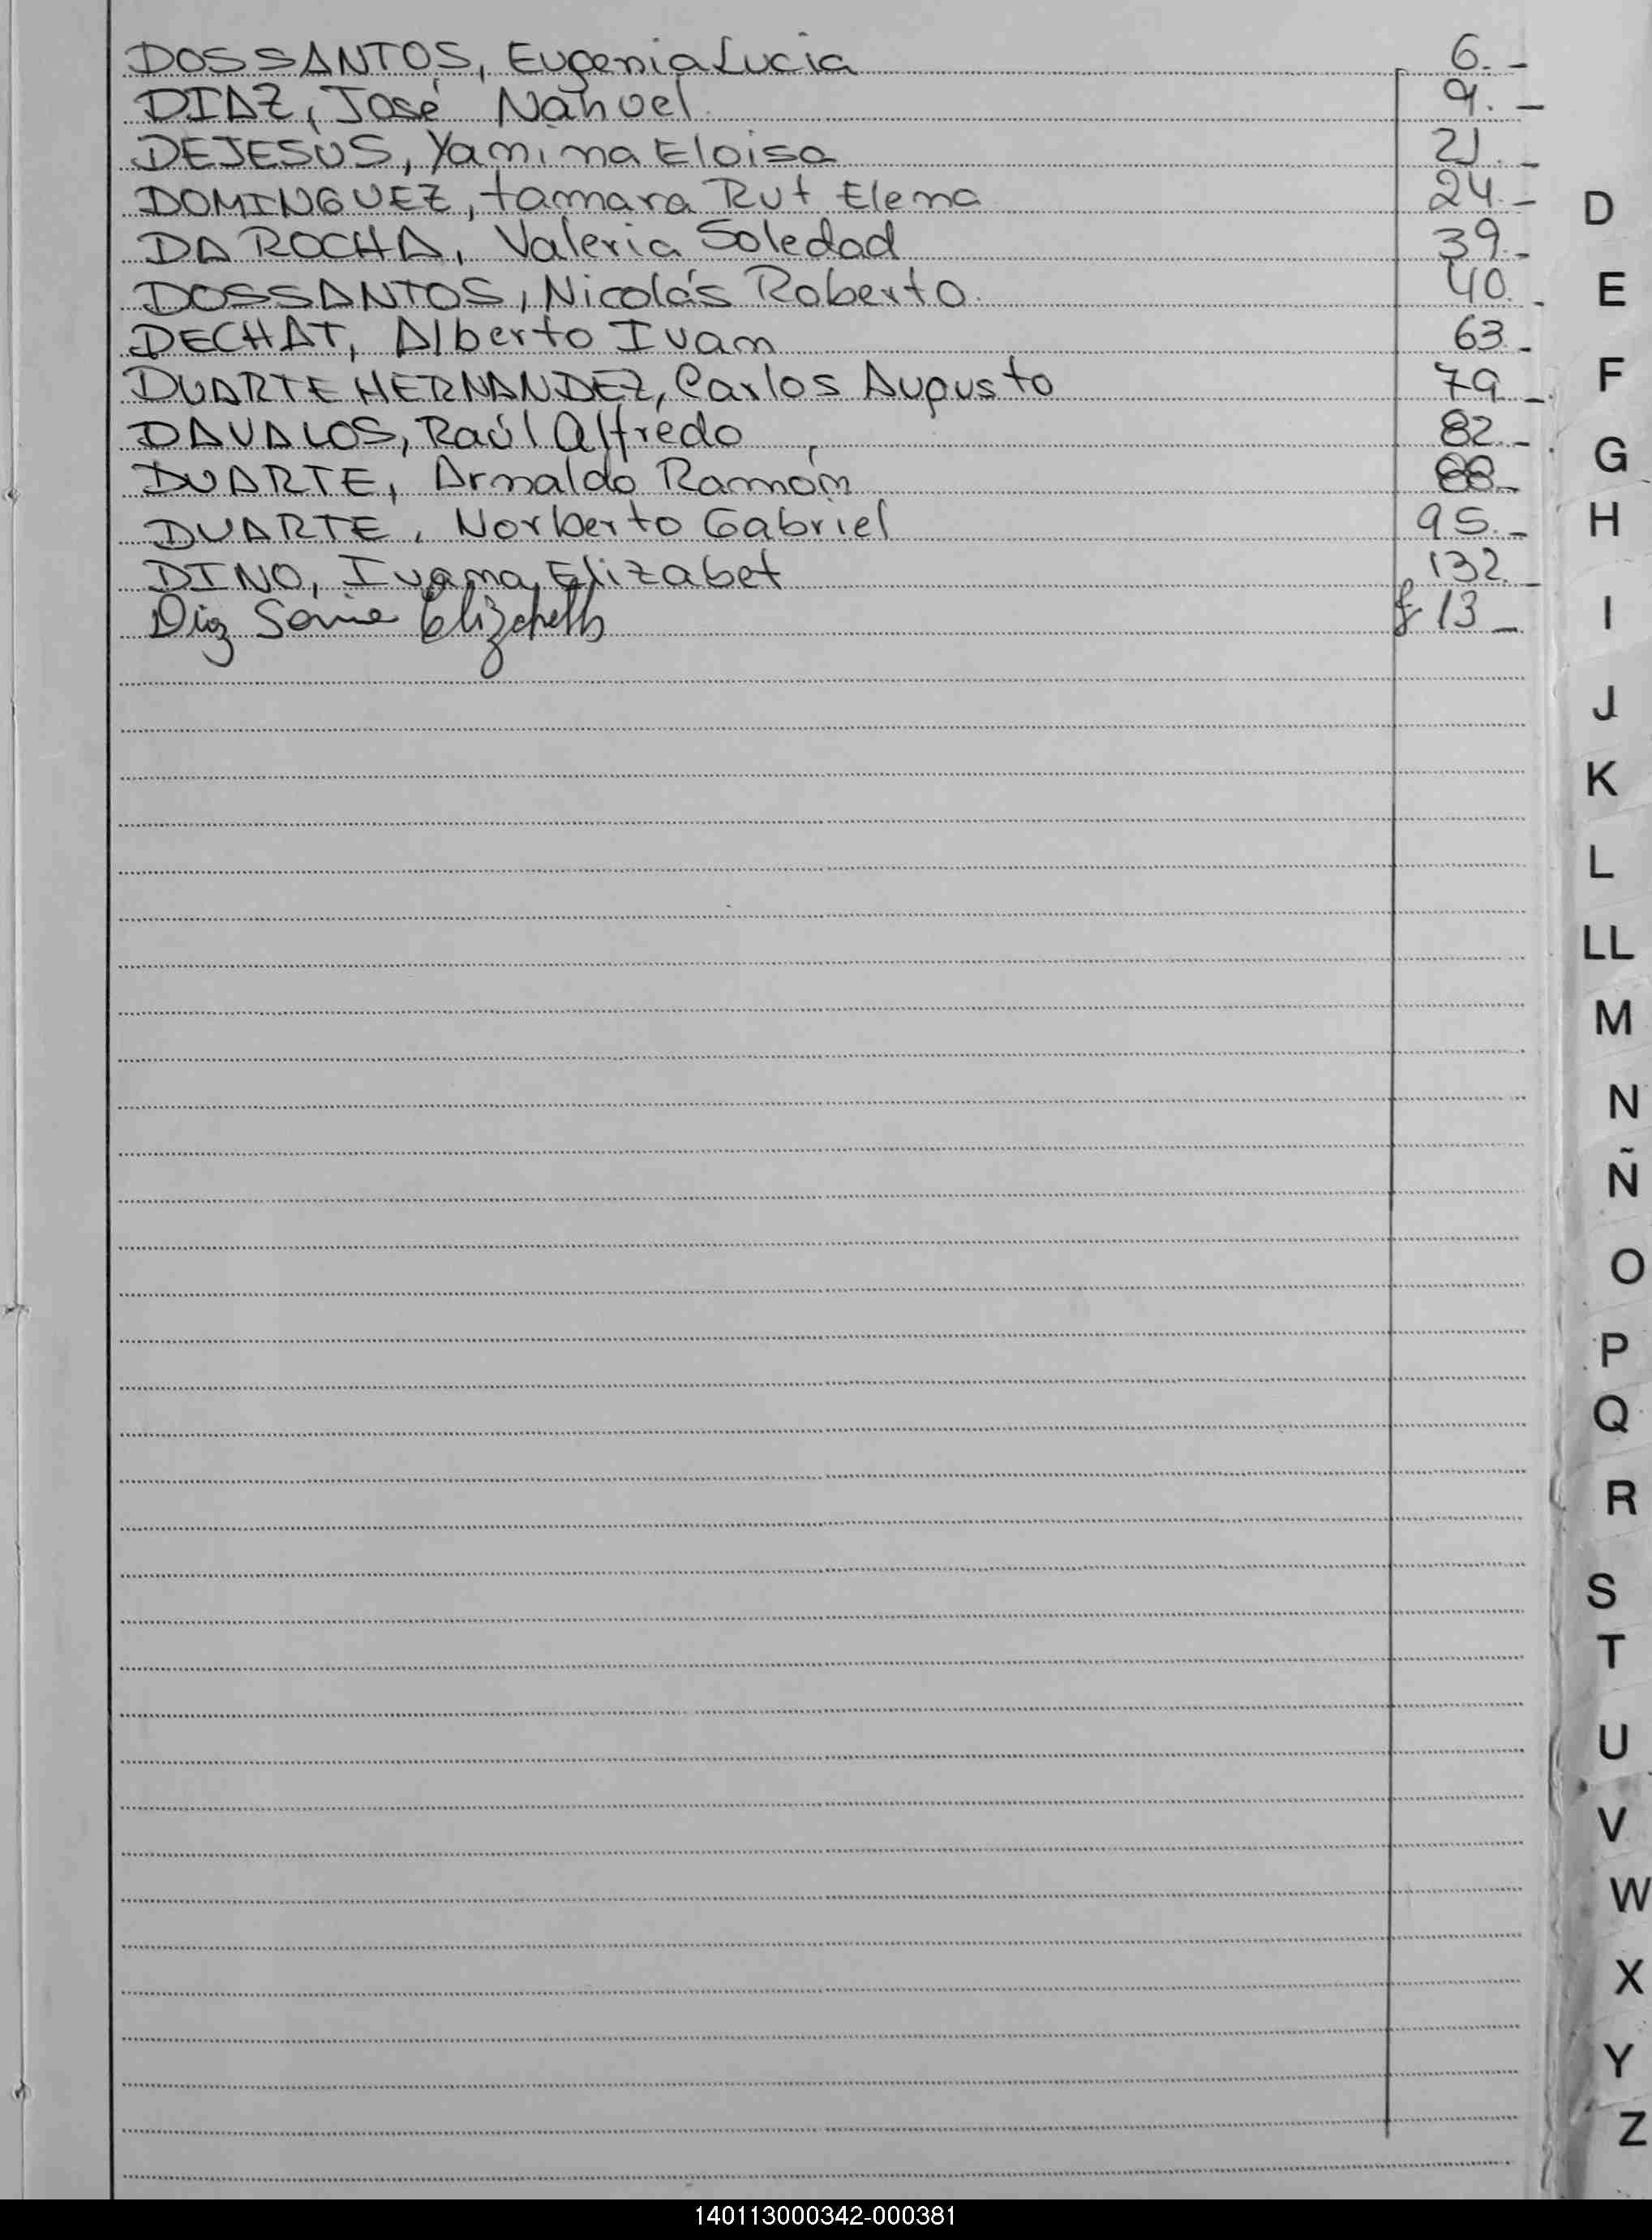 DOSSANTOS, Eugenia Lucia 6.-
DIAZ, José Nahuel. 9.-
DEJESUS, Yanina Eloisa 21.-
DOMINGUEZ, tamara Rut Elena 24.-
DA ROCHA, Valeria Soledad 39.-
DOSSANTOS, Nicolás Roberto. 40.-
DECHAT, Alberto Ivan 63.-
DUARTE HERNANDEZ, Carlos Augusto 79.-
DAVALOS, Raúl Alfredo 82.-
DUARTE, Arnaldo Ramón 88.-
DUARTE, Norberto Gabriel 95.-
DINO, Ivana Elizabet 132.-
Diaz Sonia Elizabeth f 13-
D
E
F
G
H
I
J
K
L
LL
M
N
Ñ
O
P
Q
R
S
T
U
V
W
X
Y
Z
140113000342-000381